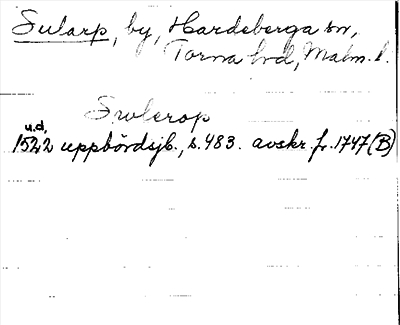 Sularp, by, Hardeberga sn,
Torna hd, Malm. l.
Swlerop
u.d.
1522 uppbördsjb., s. 483. avskr. fr. 1747 (B)